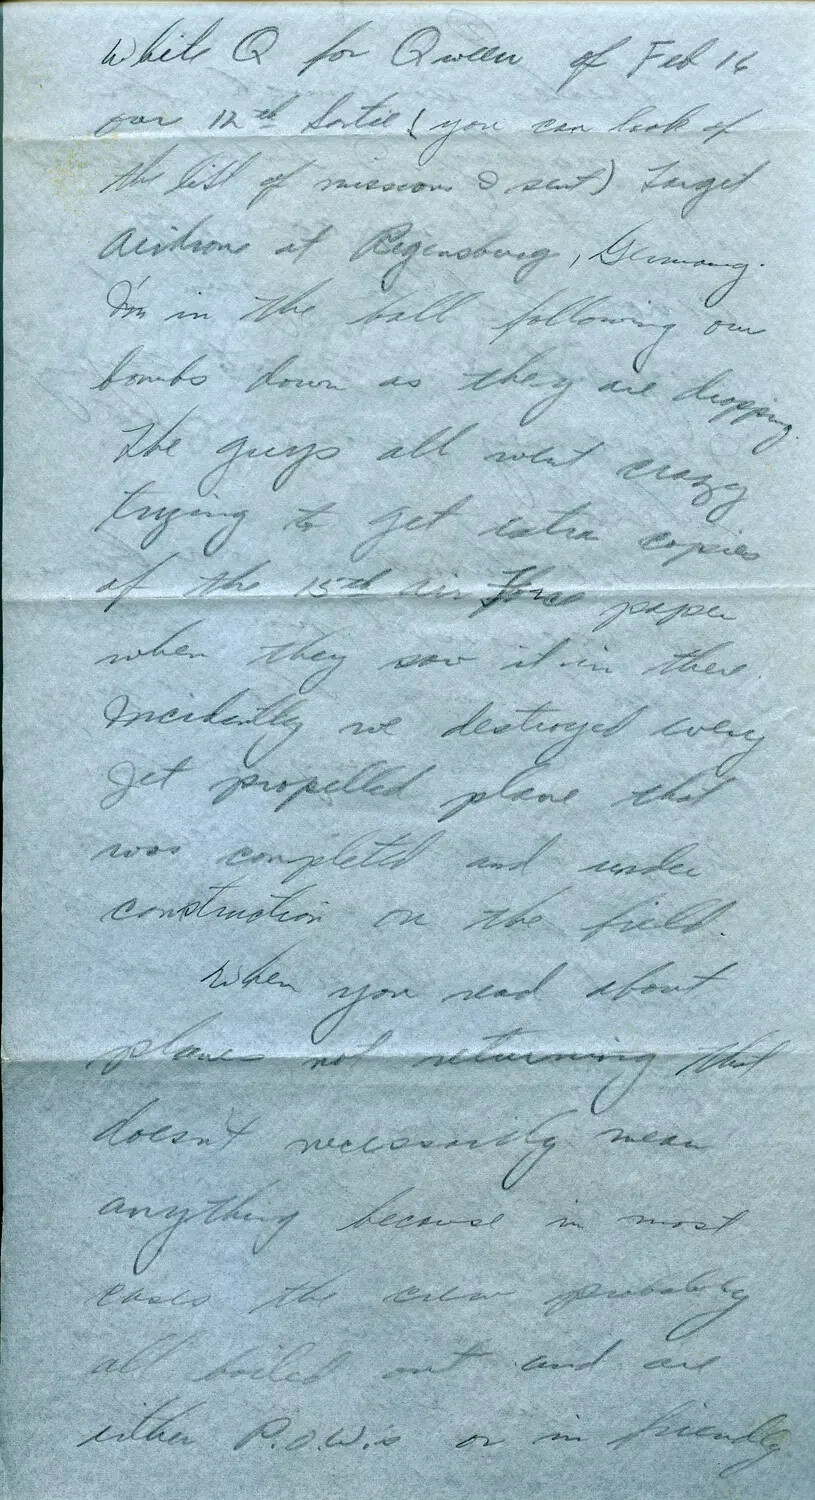 White Q for Queen of Feb 16
our 12th Sortie (you can look at
the list of missions I sent) Target
Airdrome at Regensburg, Germany.
I'm in the ball following our
bombs down as they are dropping.
The guys all went crazy
trying to get extra copies
of the 15th Air Force paper
when they saw it in there.
Incidently we destroyed every
Jet propelled plane that
was completed and under
construction on the field.
When you read about
planes not returning that
doesn't necessarily mean
anything because in most
cases the crew probably
all bailed out and are
either P.O.W.'s or in friendly